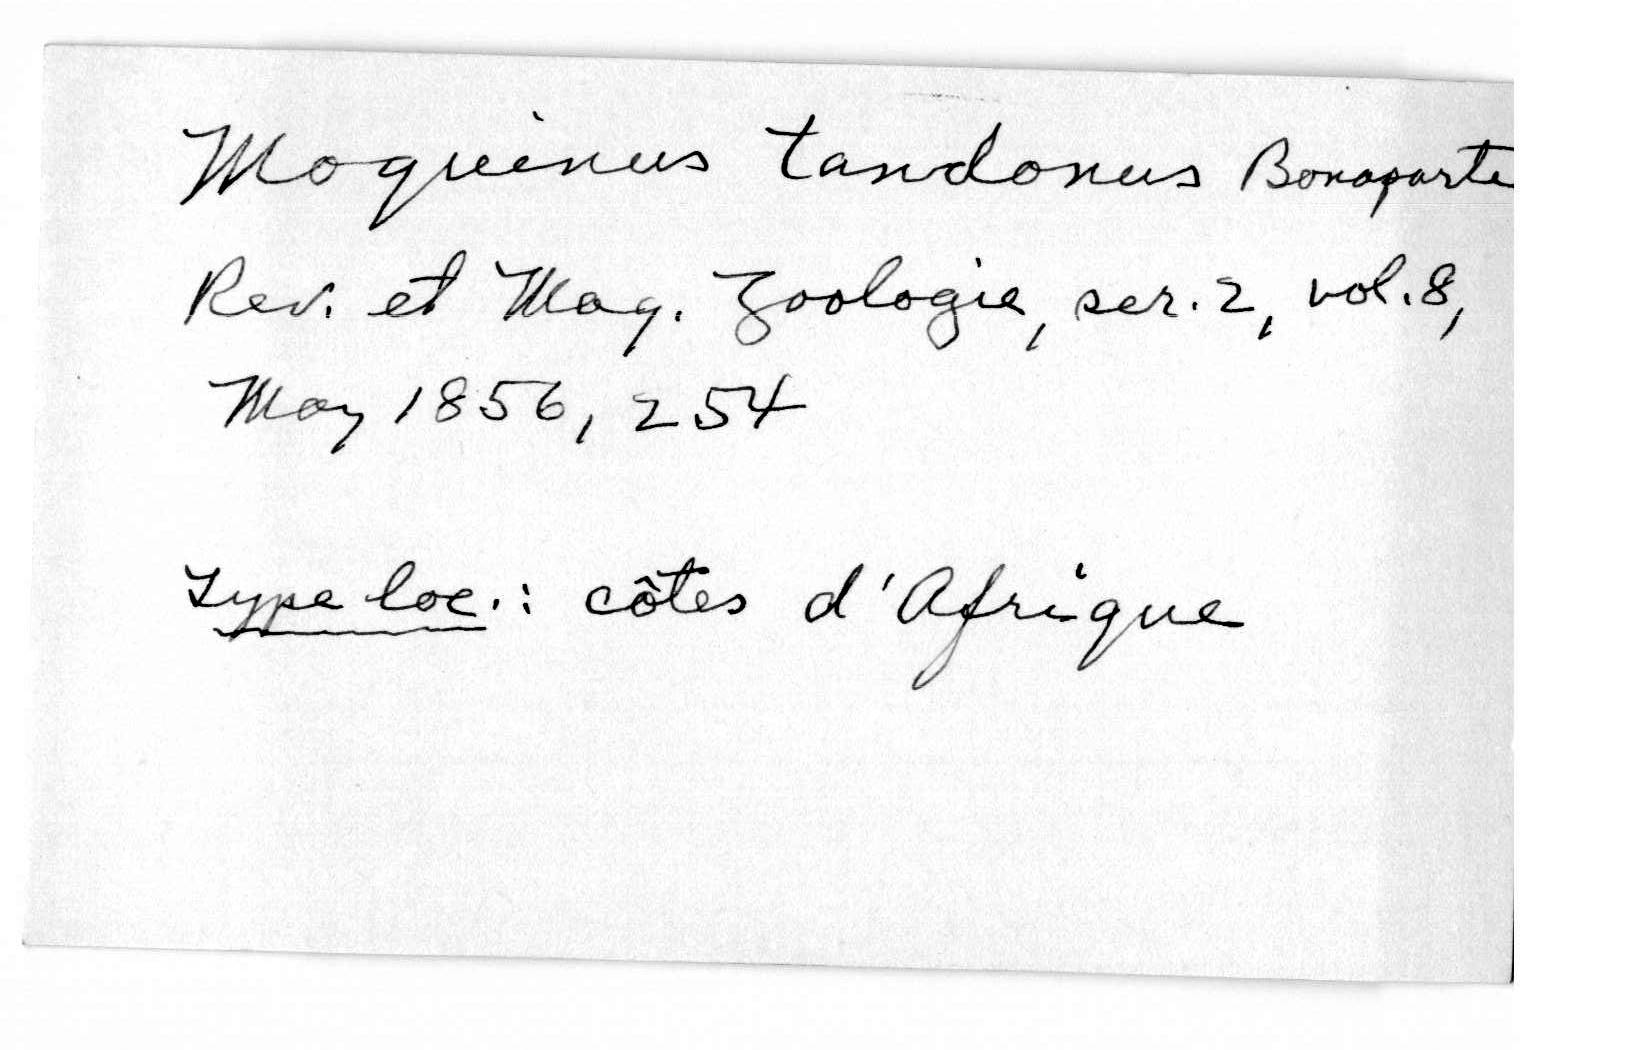 Moquinus tandonus Bonaparte
Rev. et Mag. Zoologie, ser. 2, vol. 8,
May 1856, 254
Type loc.: côtes d'Afrique